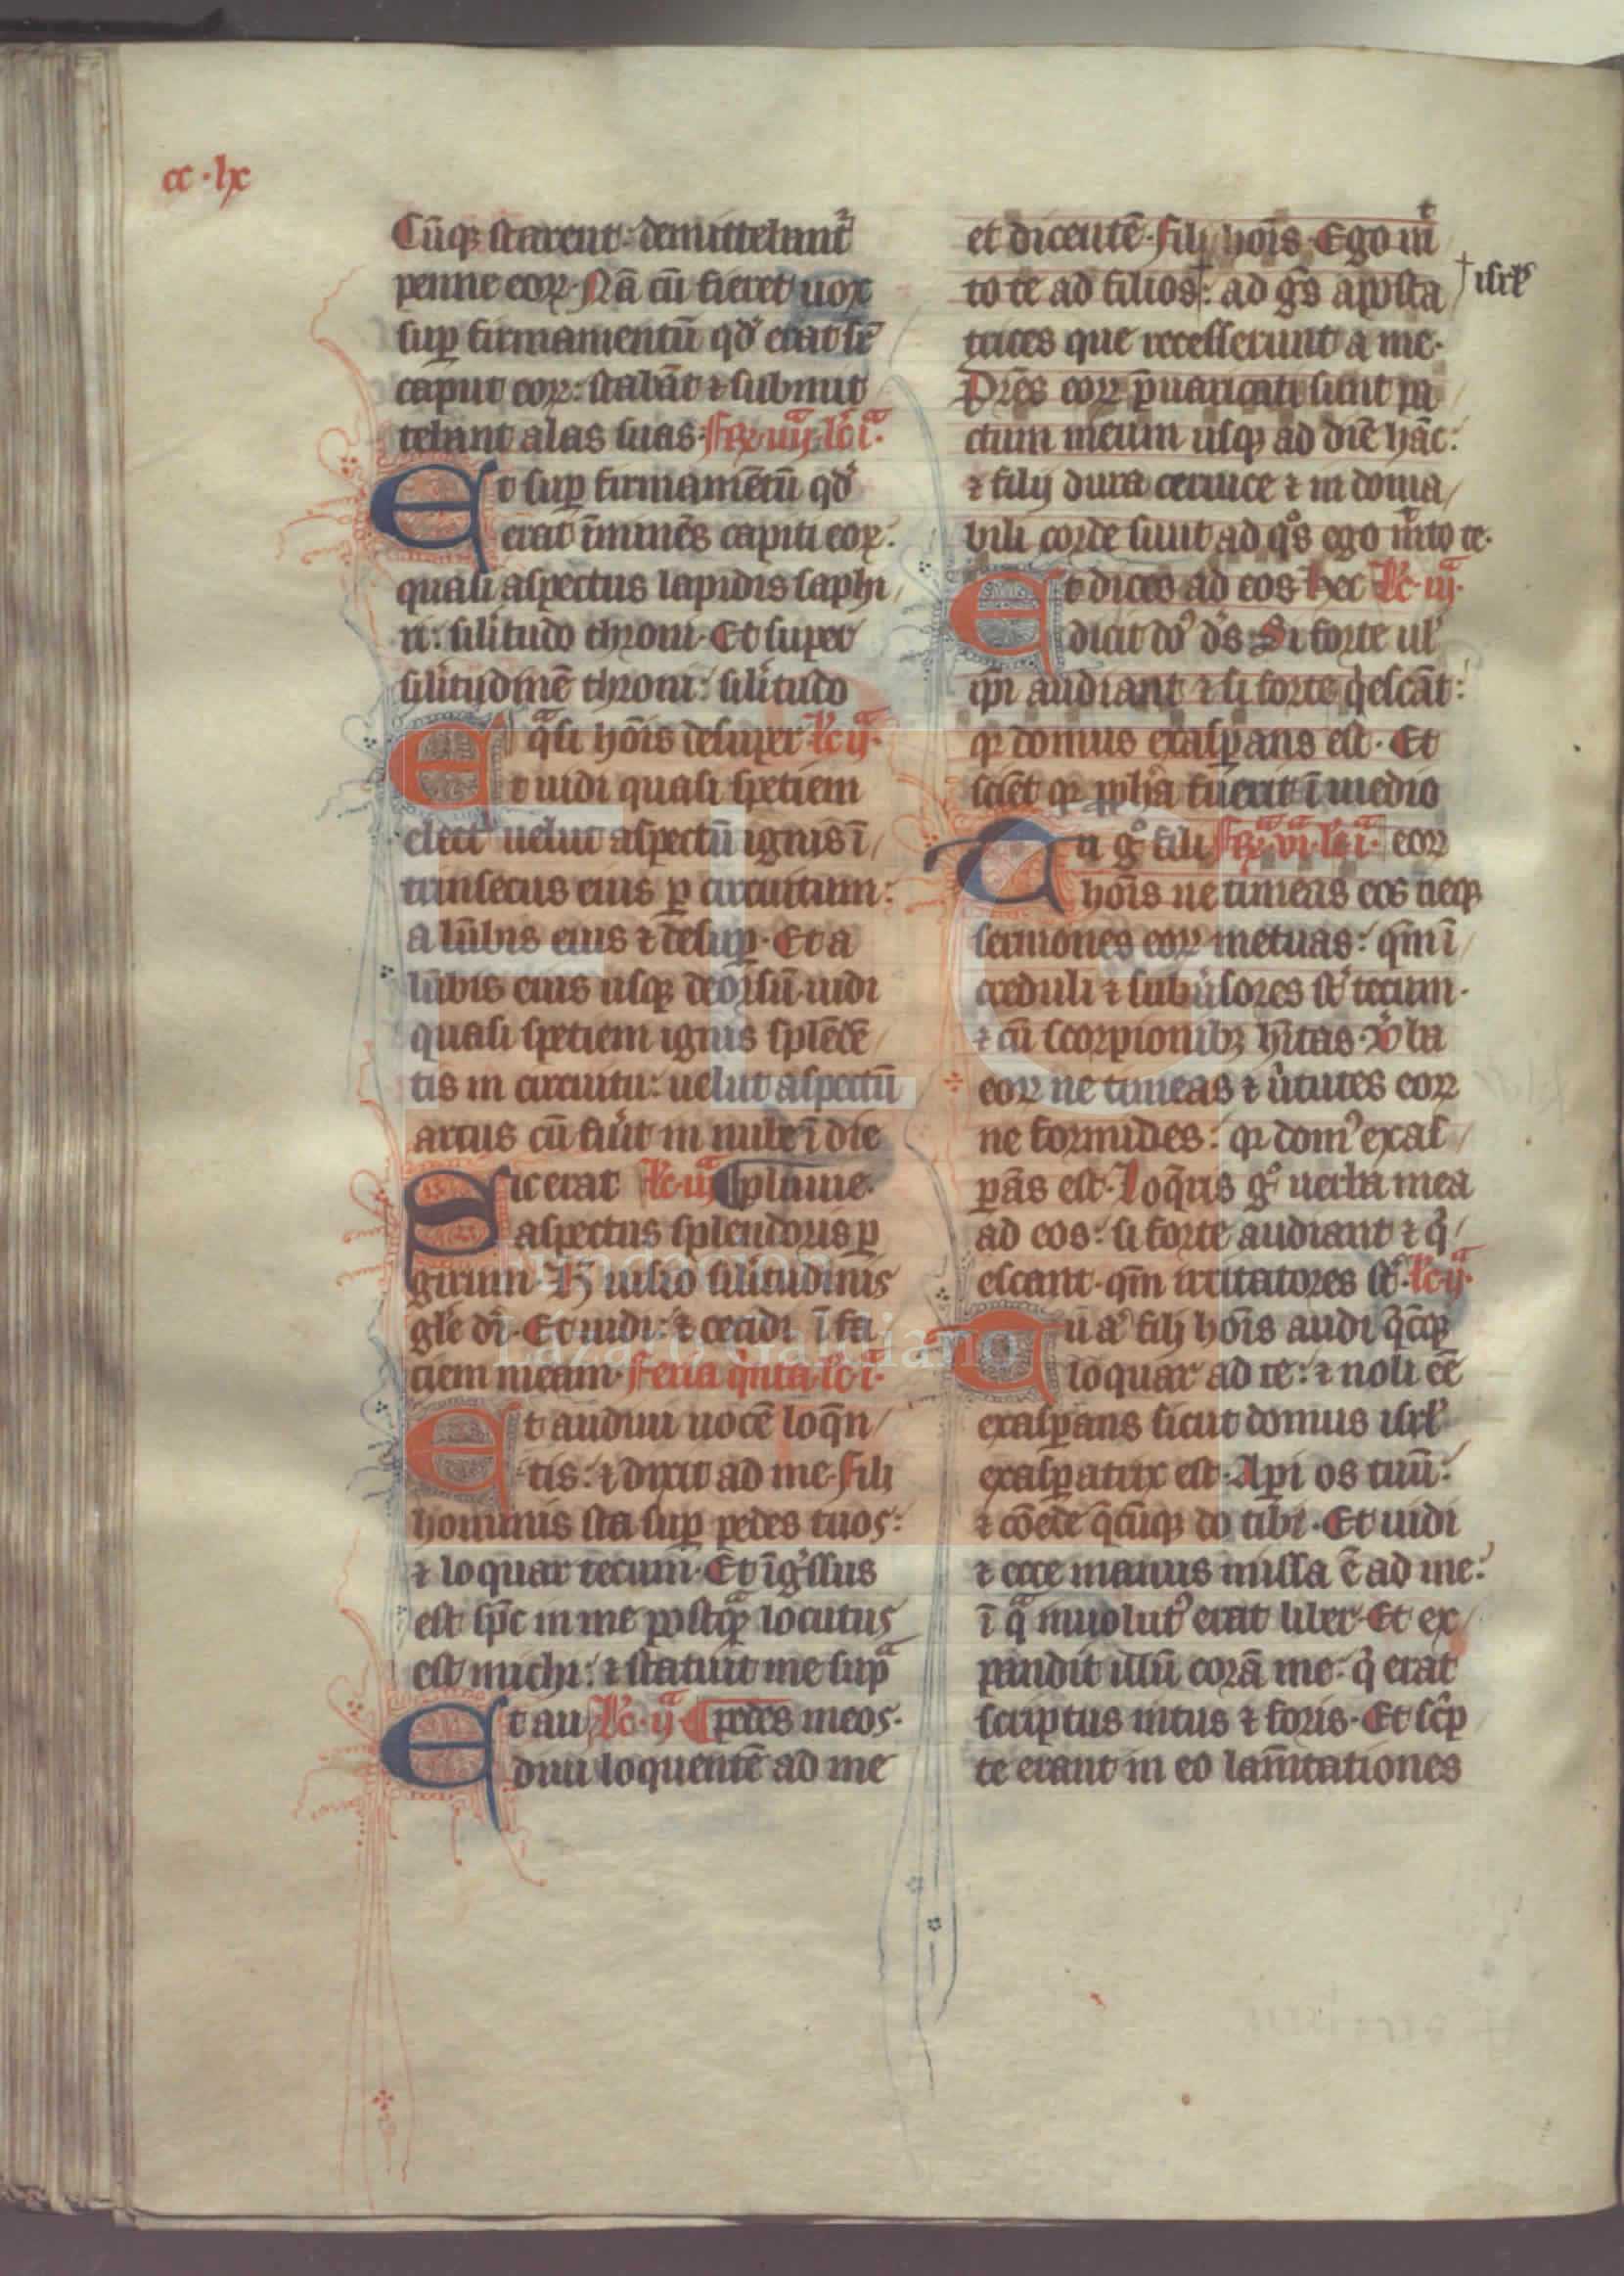 cc · lx
Cũqȝ starent: demittebant᷑
penne eoꝝ. Nā cū fieret uox
suꝑ firmamentū qd̛ erat sꝛ̄
caput eoꝝ: stabāt ⁊ submit
tebant alas suas. fꝛ iiijᵃ lc̄ iᵃ.
Et suꝑ firmamētū qd̛
erat īminēs capiti eoꝝ:
quasi aspectus lapidis saphi
ri: silitudo throni. Et super
silitudinē throni: silitudo
qᵃsi hoīs desuper lc̄ ijᵃ.
Et uidi quasi spetiem
electi uelut aspectū ignis ī
trinsecus eius ꝑ circuitum:
a lūbis eius ⁊ desuꝑ. Et a
lūbis eius usqȝ deorsū. uidi
quasi spetiem ignis splēdē
tis in circuitu: uelut aspectū
arcus cū fưit in nube ī die
Sic erat lc̄ iijᵃ ¶ pluuie.
aspectus splendoris ꝑ
girum. H̛ uisio silitudinis
gl̄e dī. Et uidi: ⁊ cecidi ī fa
ciem meam. feria qⁱnta lc̄ i.
Et audiui uocē loqn̄
tis: ⁊ dixit ad me. fili
hominis sta suꝑ pedes tuos:
⁊ loquar tecum. Et īgr̛ssus
est sp̄c in me postqᵃꝫ locutus
est michi: ⁊ statuit me supᵃ
Et au lc̄ ijᵃ ¶ pedes meos.
diui loquentē ad me
et dicentē. fili hoīs. Ego mᵗ
to te ad filios: ad gn̄s aposta † isrl̄
trices que recesserunt a me.
Pr̄es eoꝝ p̄uaricati sunt pa
ctum meum usqȝ ad diē hāc:
⁊ filij dura ceruice ⁊ in doma
bili corde sunt ad qᵒs ego mⁱto te.
Et dices ad eos hec lc̄ iijᵃ.
dicit do᷒ ds̄. Si forte ul̛
ip̄i audiant ⁊ si forte qⁱescāt:
qꝛ domus exasꝑans est. Et
sciēt qꝛ ꝓpha fuerit ī medio
Tu gᵒ fili fꝛ viᵃ lc̄ iᵃ. eoꝝ
hoīs ne timeas eos neqȝ
sermones eoꝝ metuas: qm̄ ī
creduli ⁊ subưsores st̄ tecum.
⁊ cū scorpionibȝ hītas. V̛ba
eoꝝ ne timeas ⁊ ưtutes eoꝝ
ne formides: qꝛ dom᷒ exas
ꝑās est. loqr̄is gᵒ uerba mea
ad eos: si forte audiant ⁊ qⁱ
escant. qm̄ irritatores st̄. lc̄ ijᵃ.
Tu aᵗ fili hoīs audi qᵉcūqȝ
loquar ad te: ⁊ noli ēē
exasꝑans sicut domus isrl̄
exasꝑatrix est. Aꝑi os tuū:
⁊ cōede qᵉcūqȝ do tibi. Et uidi
⁊ ecce manus missa ē ad me:
ī qᵃ inuolut᷒ erat liber. Et ex
pandit illū corā me. qⁱ erat
scriptus intus ⁊ foris. Et scⁱp
te erant in eo lam̄tationes